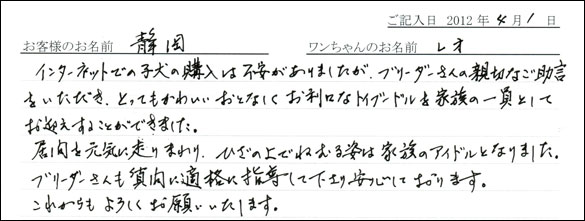 ご記入日 2012年 4月 1日
お客様のお名前 静岡 ワンちゃんのお名前 レオ
インターネットでの子犬の購入は不安がありましたが、ブリーダーさんの親切なご助言
をいただき、とってもかわいいおとなしくお利口なトイプードルを家族の一員として
お迎えすることができました。
居間を元気に走りまわり、ひざの上でねむる姿は家族のアイドルとなりました。
ブリーダーさんも質問に適格に指導して下さり安心しております。
これからもよろしくお願いいたします。